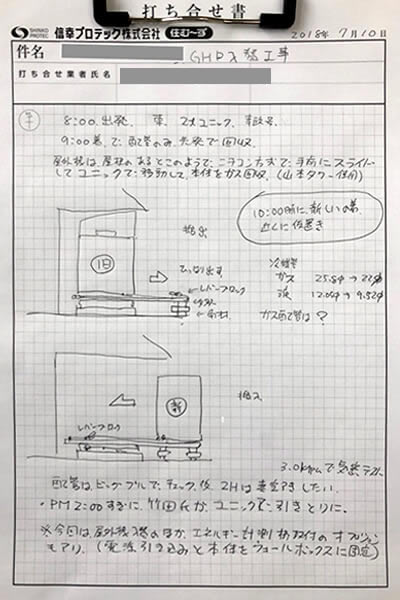 打ち合せ書
SHINKO PROTEC 信幸プロテック株式会社 住む〜ず 2018年7月10日
件名 GHP入替工事
打ち合せ業者氏名
8:00出発、東、2tユニック、
9:00着で配管のみ先発で回収
屋外機は、屋根のあるところのようで、ニチコン方式で、手前にスライド
してユニックで移動して、本体をガス回収、(山本タワー仕分)
10:00前に新しいの着
近くに仮置き
搬出
旧
ひっぱり出す
レバーブロック
冷媒管
ガス 25.4φ→22φ
液 12.0φ→9.52φ
ガス配管は?
新
搬入
レバーブロック
3.0kgMPaで気密テスト
配管は、ビッグブルで、チェック後 2Hは真空引きしたい。
・PM2:00すぎに竹田氏が、ユニックで引きとりに。
※今回は、屋外機入替のほか、エネルギー計測器取付のオプション
もアリ、(電源引き込みと本体をウォールボックスに固定)